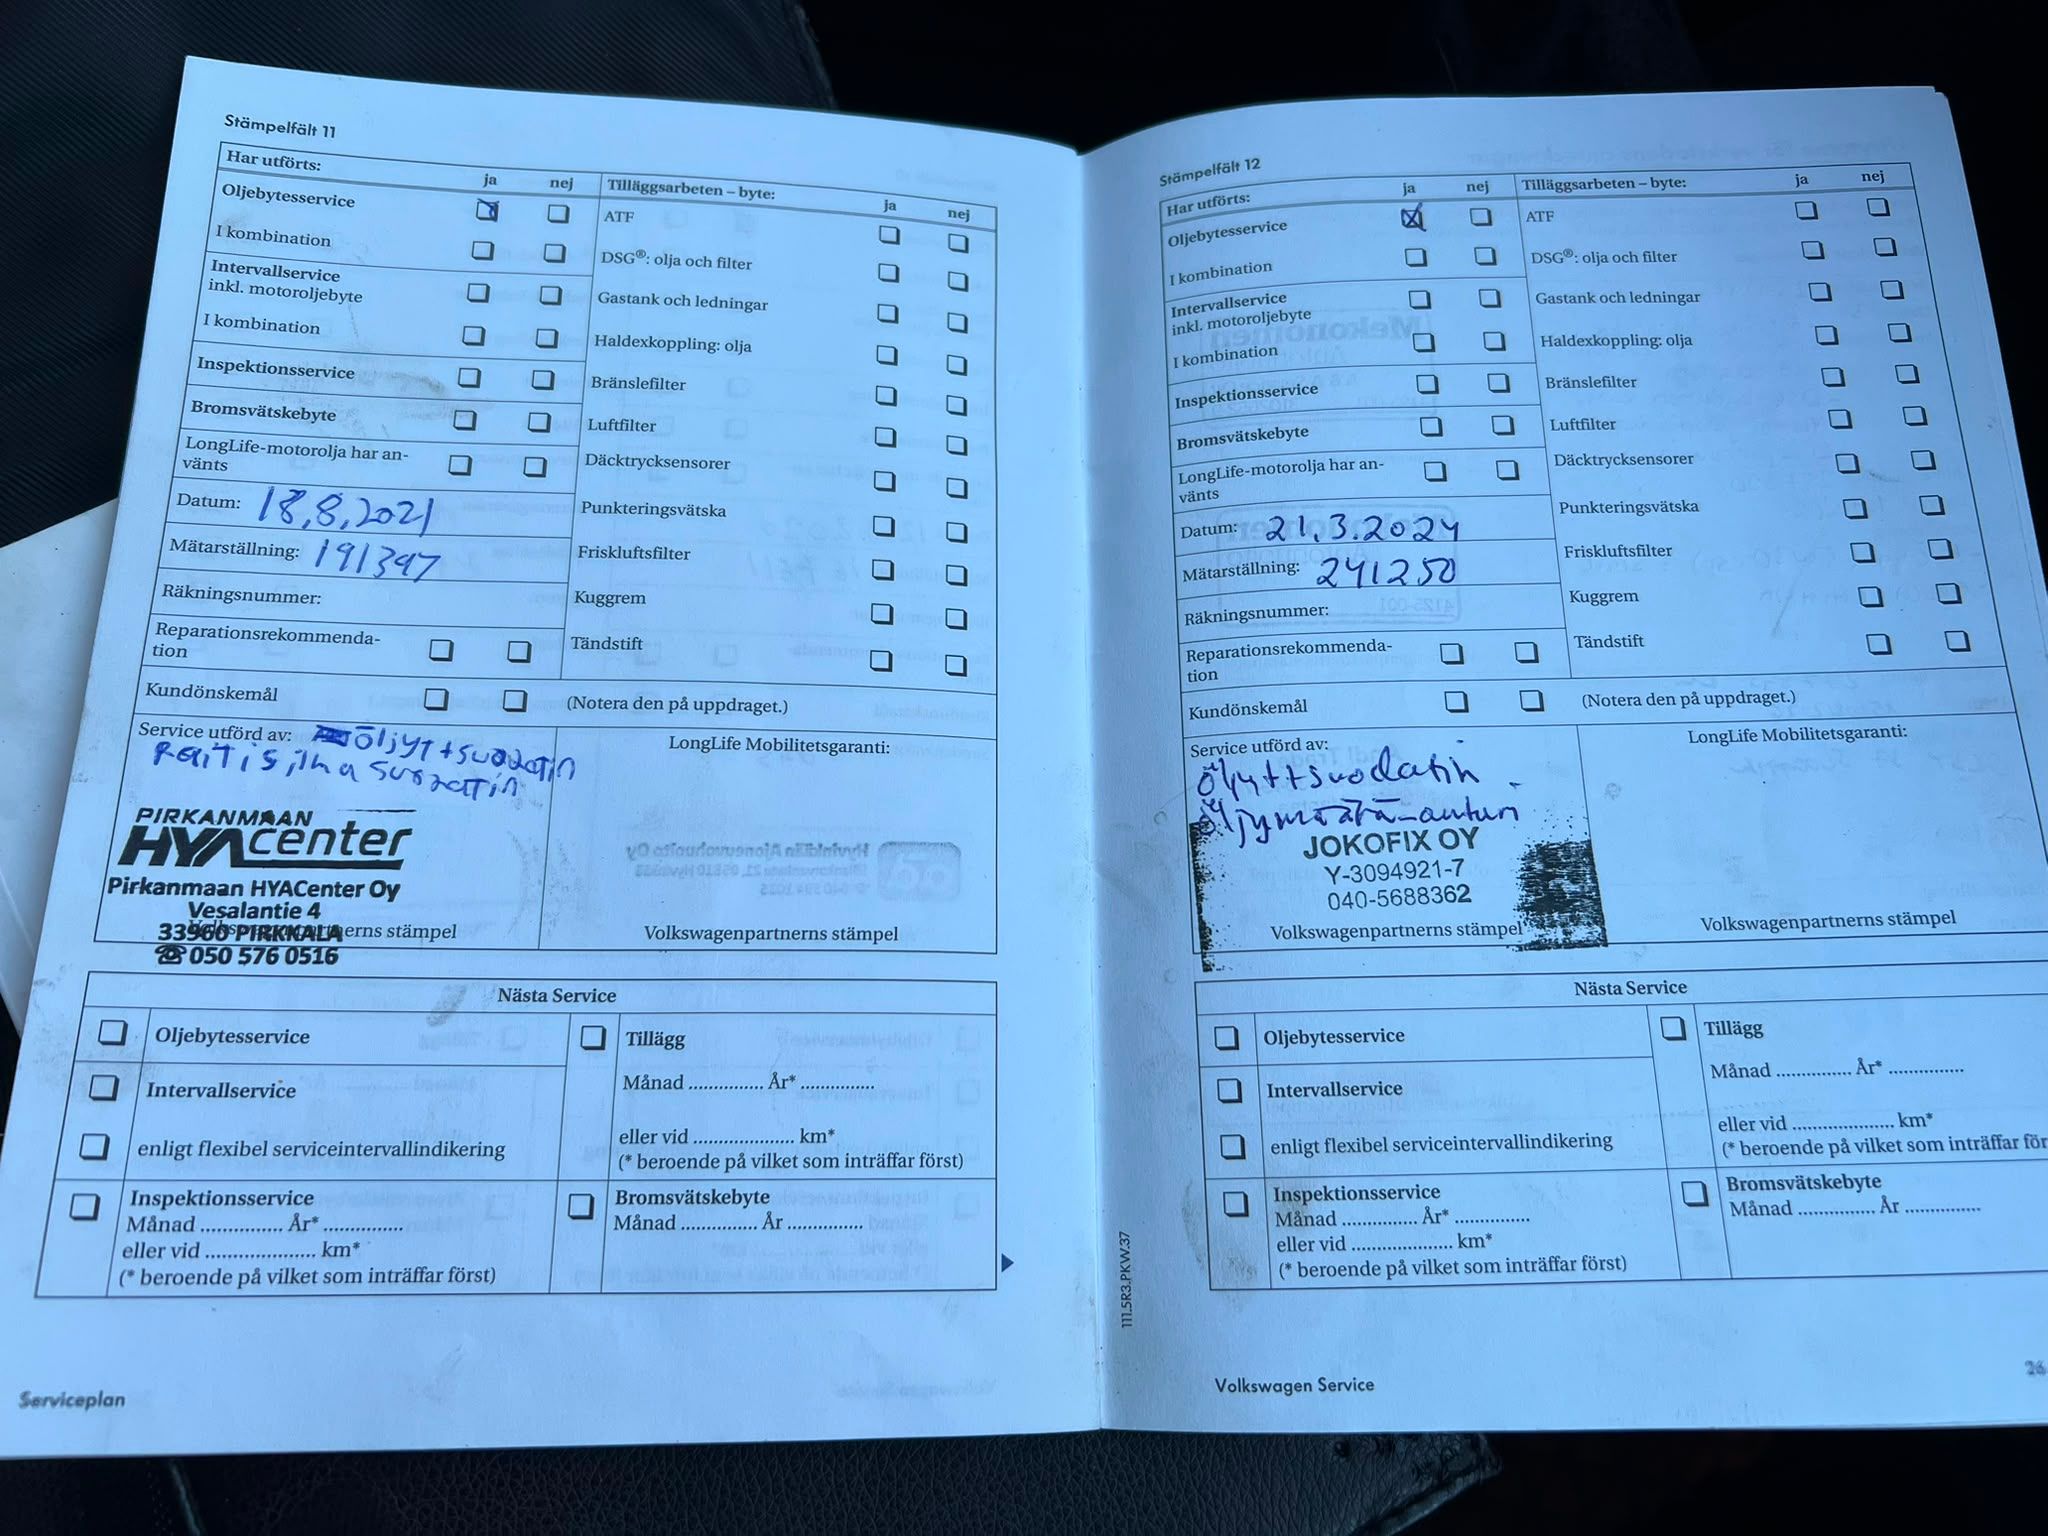 Stämpelfält 11
Har utförts: ja nej
Oljebytesservice
I kombination
Intervallservice
inkl. motoroljebyte
I kombination
Inspektionsservice
Bromsvätskebyte
LongLife-motorolja har an-
vänts
Datum: 18.8.2021
Mätarställning: 191397
Räkningsnummer:
Reparationsrekommenda-
tion
Tilläggsarbeten – byte: ja nej
ATF
DSG®: olja och filter
Gastank och ledningar
Haldexkoppling: olja
Bränslefilter
Luftfilter
Däcktrycksensorer
Punkteringsvätska
Friskluftsfilter
Kuggrem
Tändstift
Kundönskemål (Notera den på uppdraget.)
Service utförd av: öljyt+suodatin
Raitisilmasuodatin
PIRKANMAAN
HYAcenter
Pirkanmaan HYACenter Oy
Vesalantie 4
33960 PIRKKALA
☎ 050 576 0516
Volkswagenpartnerns stämpel
LongLife Mobilitetsgaranti:
Volkswagenpartnerns stämpel
Nästa Service
Oljebytesservice
Intervallservice
enligt flexibel serviceintervallindikering
Inspektionsservice
Månad ............... År* ...............
eller vid .................... km*
(* beroende på vilket som inträffar först)
Tillägg
Månad ............... År* ...............
eller vid .................... km*
(* beroende på vilket som inträffar först)
Bromsvätskebyte
Månad ............... År ...............
Serviceplan
Stämpelfält 12
Har utförts: ja nej
Oljebytesservice
I kombination
Intervallservice
inkl. motoroljebyte
I kombination
Inspektionsservice
Bromsvätskebyte
LongLife-motorolja har an-
vänts
Datum: 21.3.2024
Mätarställning: 241250
Räkningsnummer:
Reparationsrekommenda-
tion
Tilläggsarbeten – byte: ja nej
ATF
DSG®: olja och filter
Gastank och ledningar
Haldexkoppling: olja
Bränslefilter
Luftfilter
Däcktrycksensorer
Punkteringsvätska
Friskluftsfilter
Kuggrem
Tändstift
Kundönskemål (Notera den på uppdraget.)
Service utförd av:
Öljyt+suodatin
Öljymäärä-anturi
JOKOFIX OY
Y-3094921-7
040-5688362
Volkswagenpartnerns stämpel
LongLife Mobilitetsgaranti:
Volkswagenpartnerns stämpel
Nästa Service
Oljebytesservice
Intervallservice
enligt flexibel serviceintervallindikering
Inspektionsservice
Månad ............... År* ...............
eller vid .................... km*
(* beroende på vilket som inträffar först)
Tillägg
Månad ............... År* ...............
eller vid .................... km*
(* beroende på vilket som inträffar för
Bromsvätskebyte
Månad ............... År ...............
111.5R3.PKW.37
Volkswagen Service
26